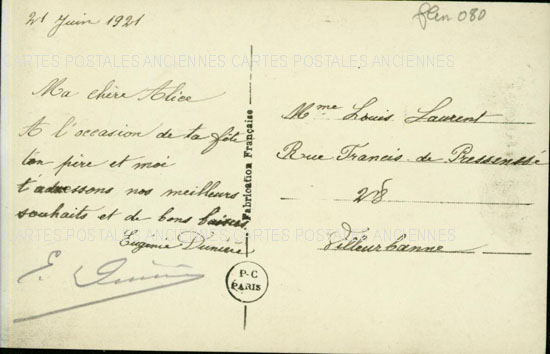 21 Juin 1921
fan 080
CARTES POSTALES ANCIENNES CARTES POSTALES ANCIENNES
Ma chère Alice
A l'occasion de ta fête
ton père et moi
t'adressons nos meilleurs
souhaits et de bons baisers
Eugenie Dunière
E.
Fabrication Française
P-C
PARIS
Mme Louis Laurent
Rue Francis de Pressensé
28
Villeurbanne